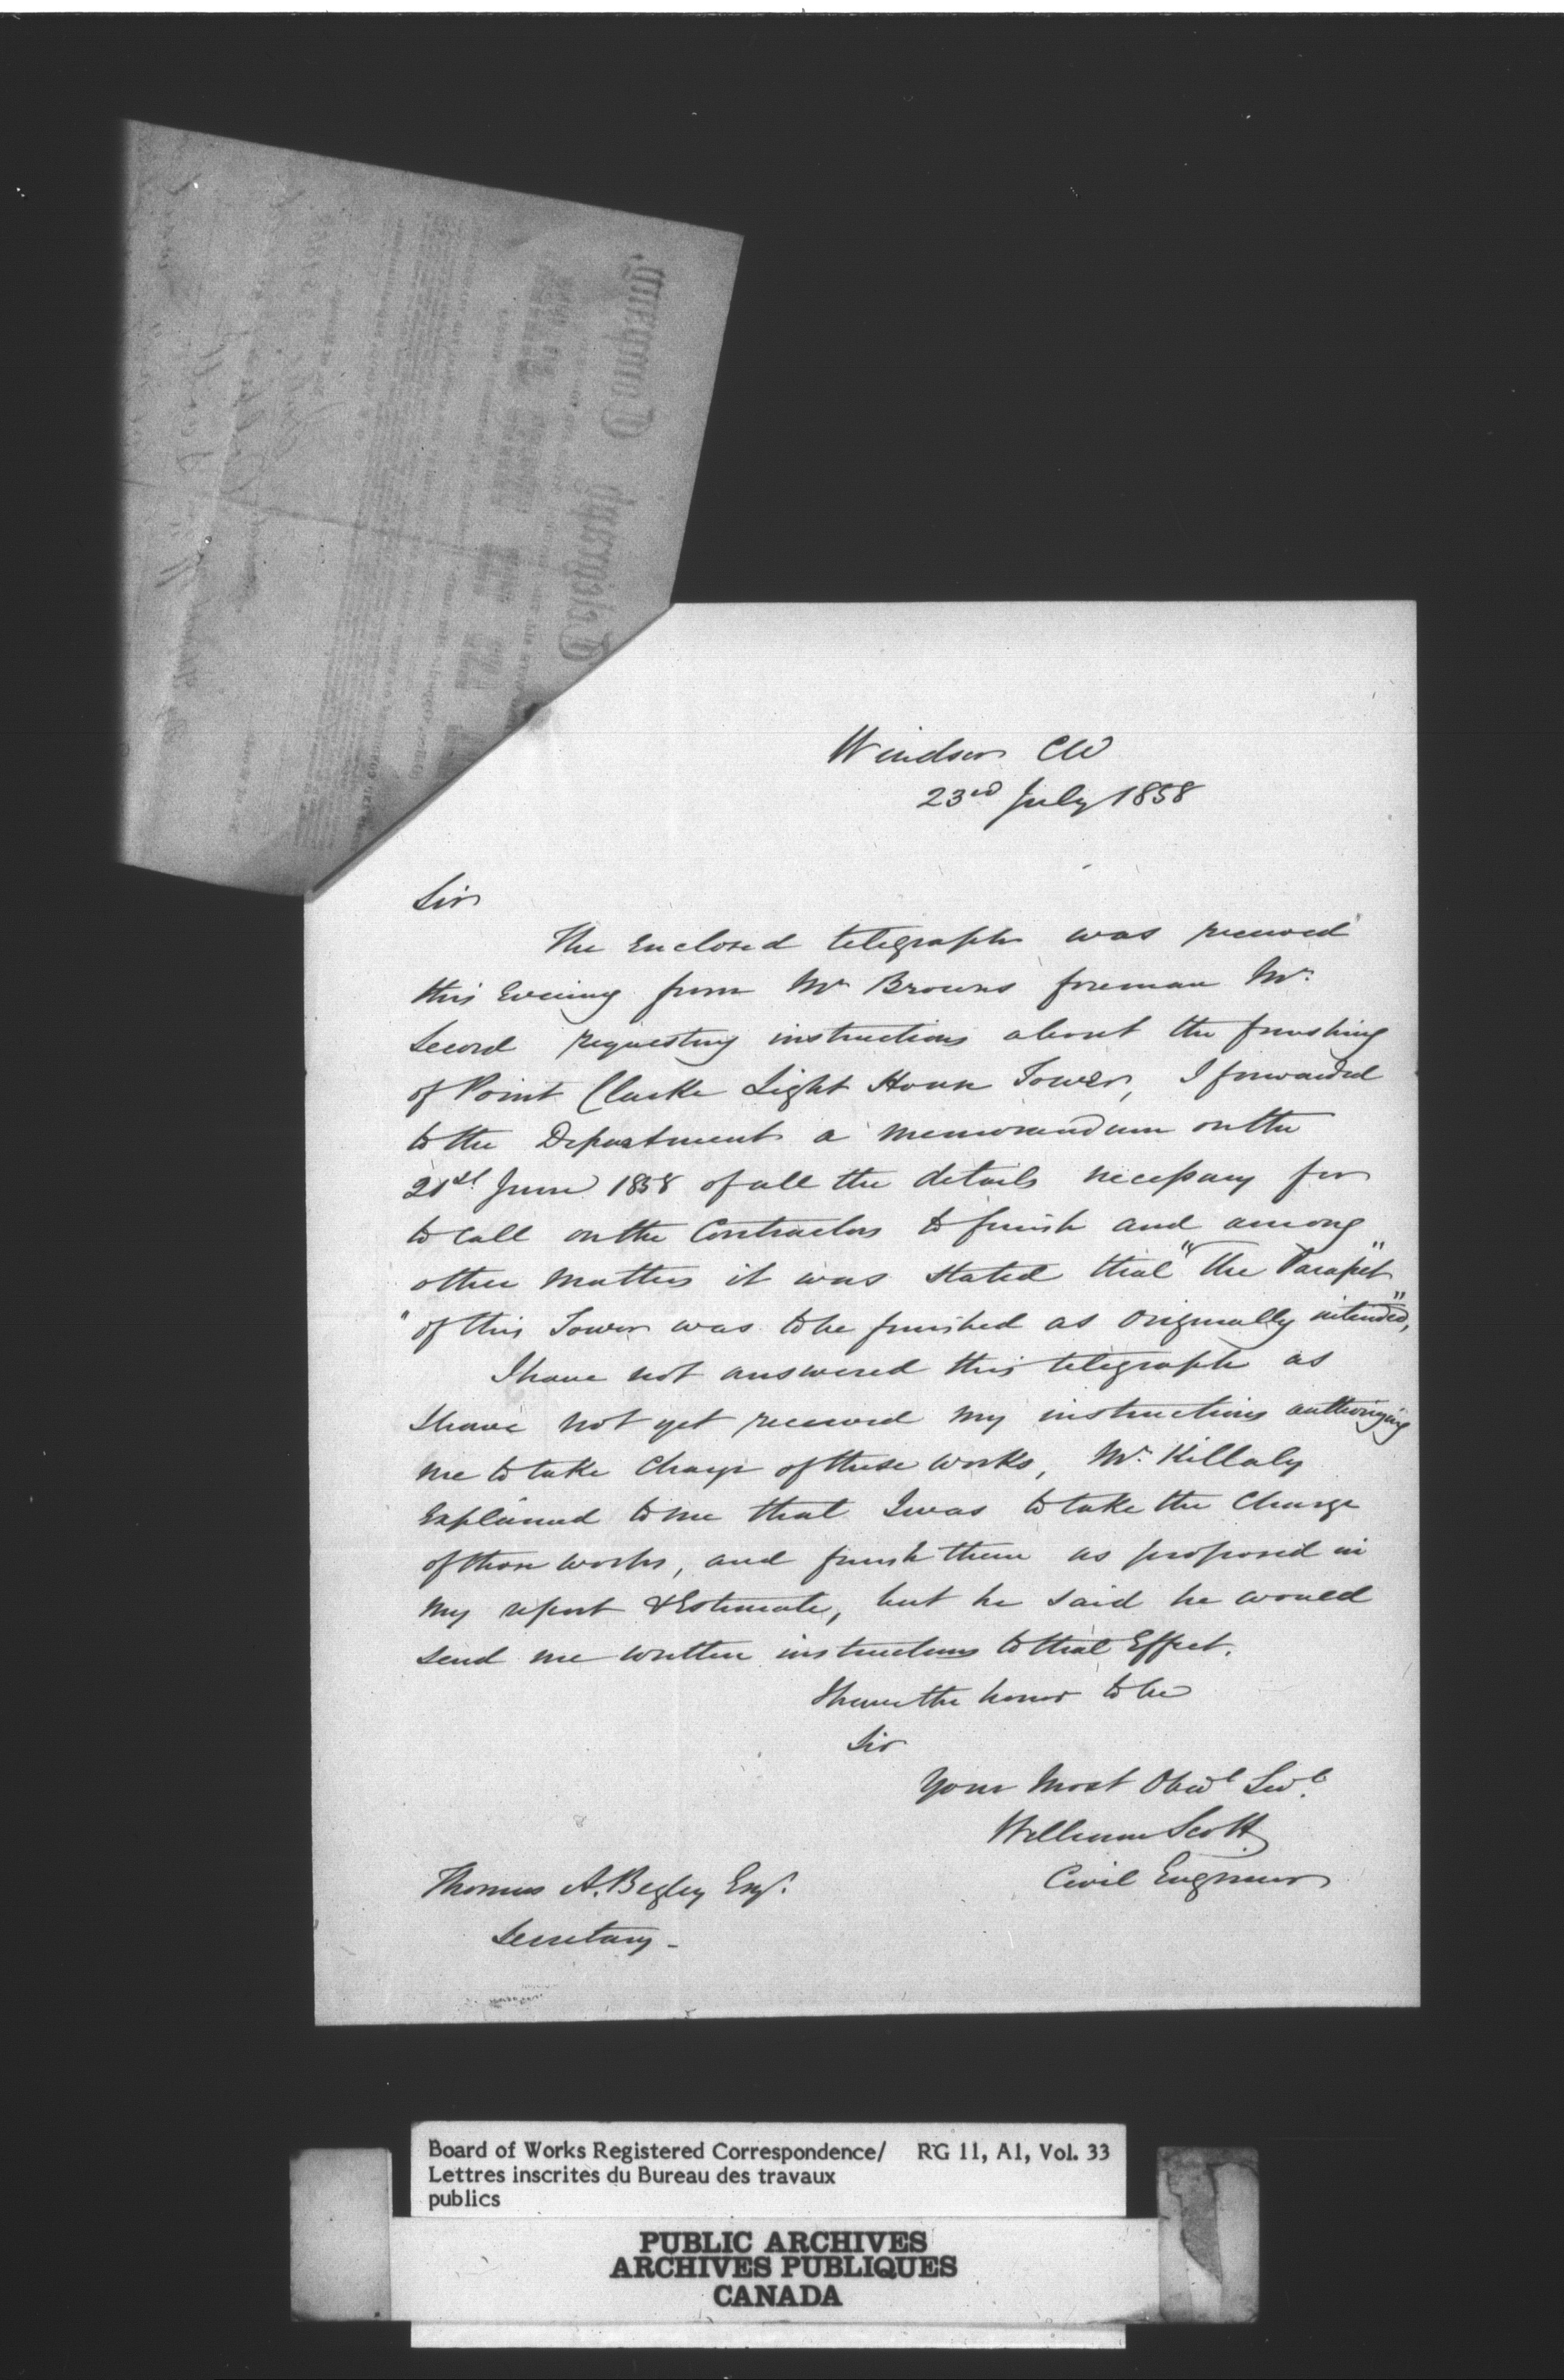 Windsor CW
23rd July 1858
Sir
The Enclosed telegraph was received
this Evening from Mr Browns foreman Mr.
Secord requesting instructions about the finishing
of Point Clarke Light House Tower, I forwarded
to the Department a memorandum on the
21st June 1858 of all the details necessary for
to call on the Contractors to finish and among
other matters it was stated that "The Parapet"
" of this Tower was to be finished as Originally intended",
I have not answered this telegraph as
I have not yet received my instructions authorizing
me to take Charge of these works, Mr. Killaly
Explained to me that I was to take the Charge
of those works, and finish them as proposed in
my report & Estimate, but he said he would
send me written instructions to that Effect.
I have the honor to be
Sir
Your Most Obedt Sevt.
William Scott
Civil Engineer
Thomas A. Begley Esqr.
Secretary -
Board of Works Registered Correspondence/ RG 11, A1, Vol. 33
Lettres inscrites du Bureau des travaux
publics
PUBLIC ARCHIVES
ARCHIVES PUBLIQUES
CANADA